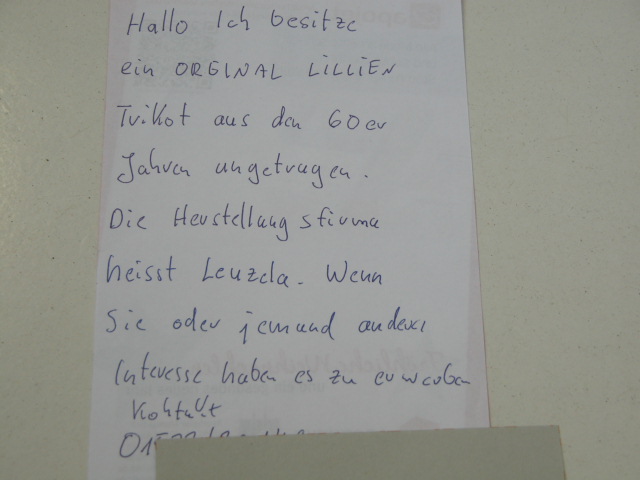 Hallo Ich besitze
ein ORGINAL LILLIEN
Trikot aus den 60er
Jahren ungetragen.
Die Herstellungsfirma
heisst Leuzela. Wenn
Sie oder jemand anderer
Interesse haben es zu erwerben
Kontakt